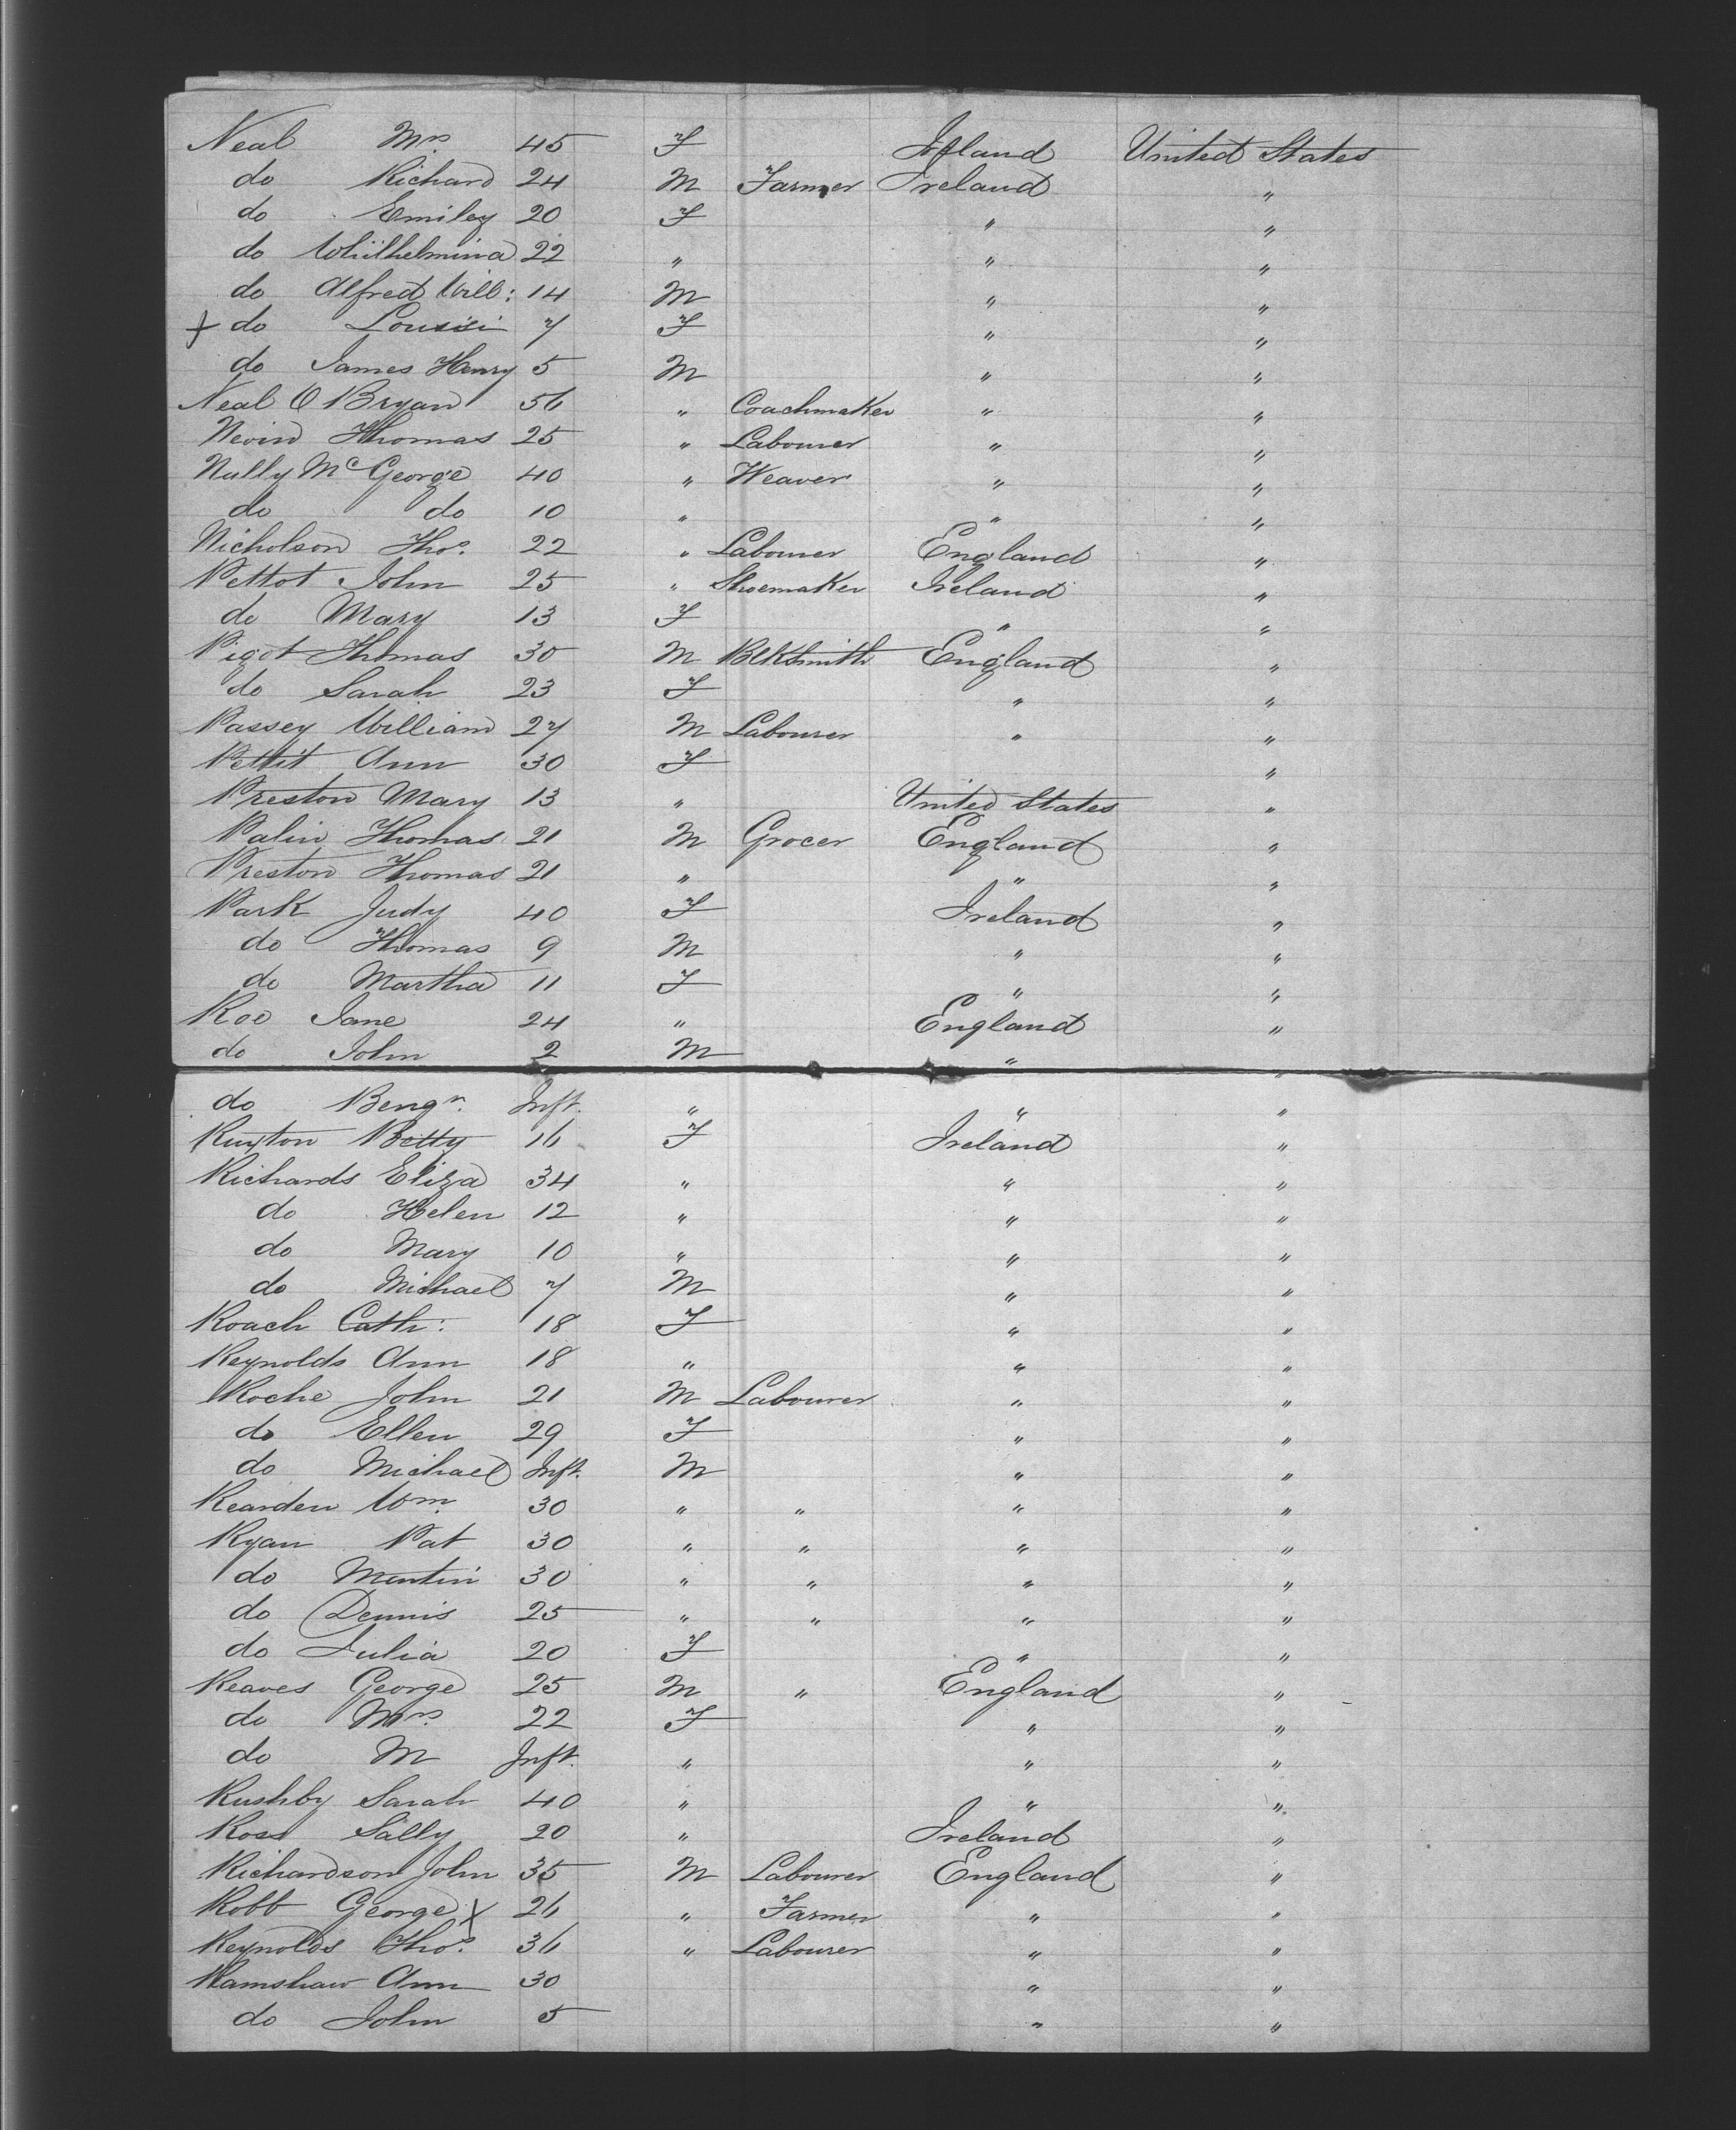 Neal Mrs. 45 F Ireland United States
do Richard 24 M Farmer Ireland "
do Emiley 20 F " "
do Whilhelmina 22 " " "
do Alfred Will: 14 M " "
x do Loussi 7 F " "
do James Henry 5 M " "
Neal O Bryan 56 " Coachmaker " "
Nevin Thomas 25 " Labourer " "
Nully Mc George 40 " Weaver " "
do do 10 " " "
Nicholson Thos. 22 " Labourer England "
Pettot John 25 " Shoemaker Ireland "
do Mary 13 F " "
Pigot Thomas 30 M BlkSmith England "
do Sarah 23 F " "
Passey William 27 M Labourer " "
Pettit Ann 30 F "
Preston Mary 13 " United States "
Palin Thomas 21 M Grocer England "
Preston Thomas 21 " " "
Park Judy 40 F Ireland "
do Thomas 9 M " "
do Martha 11 F " "
Roe Jane 24 " England "
do John 2 M " "
do Bengn. Inft. " " "
Ruxton Betty 16 F Ireland "
Richards Eliza 34 " " "
do Helen 12 " " "
do Mary 10 " " "
do Michael 7 M " "
Roach Cath: 18 F " "
Reynolds Ann 18 " " "
Roche John 21 M Labourer " "
do Ellen 29 F " "
do Michael Inft. M " "
Rearden Wm. 30 " " " "
Ryan Pat 30 " " " "
do Martin 30 " " " "
do Dennis 25 " " " "
do Julia 20 F " "
Reaves George 25 M " England "
do Mrs. 22 F " "
do M Inft. " " "
Rushby Sarah 40 " " "
Ross Sally 20 " Ireland "
Richardson John 35 M Labourer England "
Robb George x 26 " Farmer " "
Reynolds Thos. 36 " Labourer " "
Ramshaw Ann 30 " "
do John 5 " "